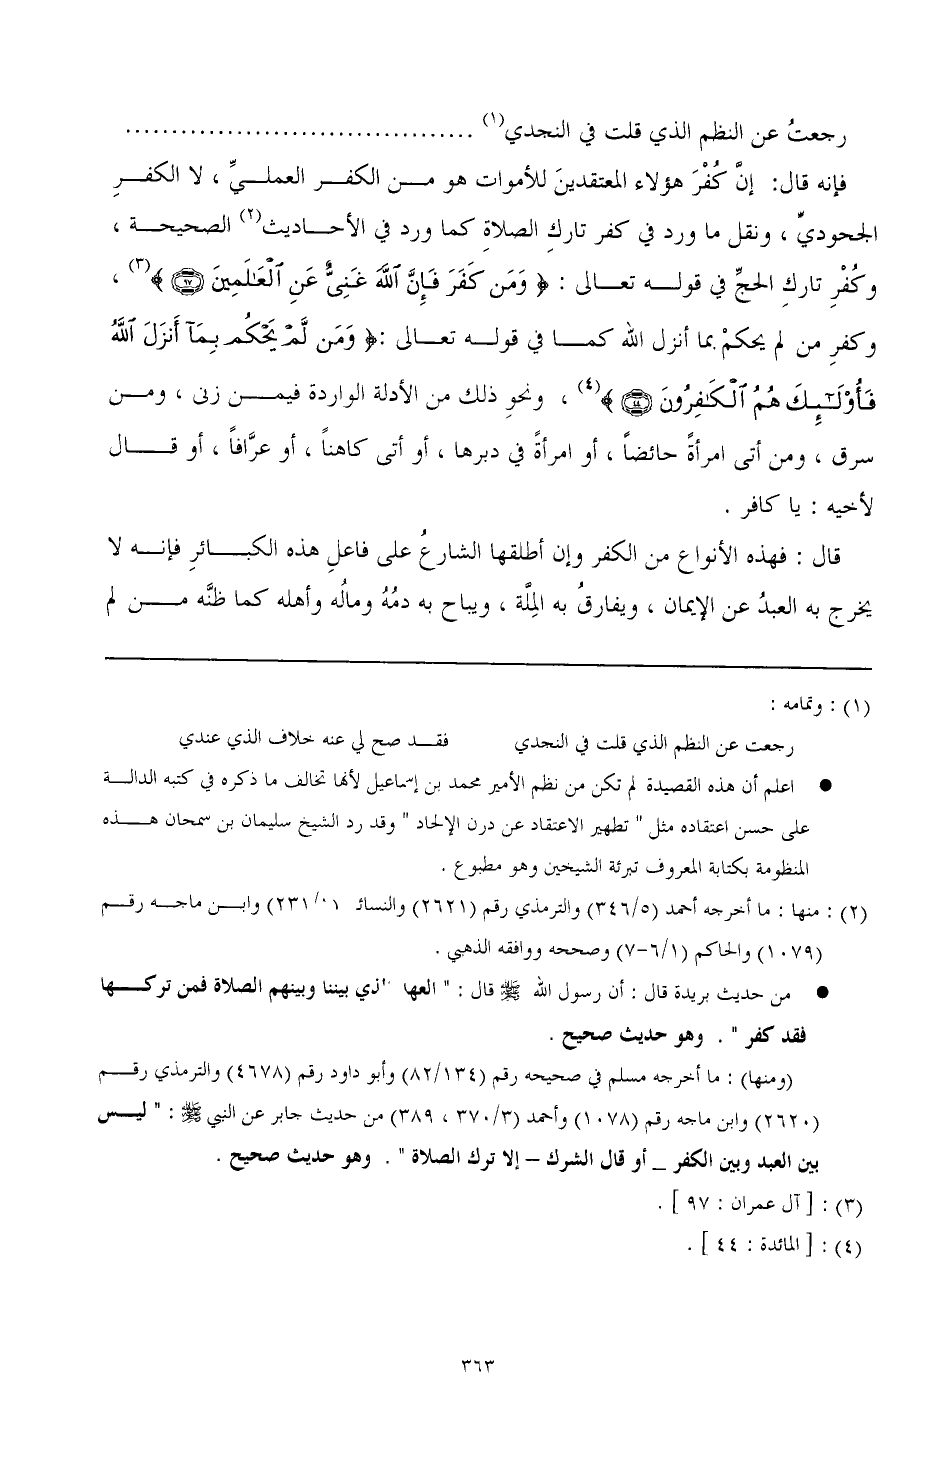 رجعتُ عن النظم الذي قلت في النجدي(١) ......................................
فإنه قال: إنَّ كُفْرَ هؤلاء المعتقدينَ للأموات هو مـن الكفـر العملـيِّ ، لا الكفـرِ
الجحوديِّ ، ونقل ما ورد في كفر تاركِ الصلاةِ كما ورد في الأحـاديث(٢) الصحيحـة ،
وكُفْرِ تاركِ الحجِّ في قولـه تعـالى : ﴿ وَمَن كَفَرَ فَإِنَّ ٱللَّهَ غَنِىٌّ عَنِ ٱلْعَٰلَمِينَ ۝٩٧ ﴾(٣) ،
وكفرِ من لم يحكمْ بما أنزل الله كمـا في قولـه تعـالى :﴿ وَمَن لَّمْ يَحْكُم بِمَآ أَنزَلَ ٱللَّهُ
فَأُوْلَـٰٓئِكَ هُمُ ٱلْكَٰفِرُونَ ۝٤٤ ﴾(٤) ، ونحوِ ذلك من الأدلة الواردة فيمـن زنى ، ومـن
سرق ، ومن أتى امرأةً حائضاً ، أو امرأةً في دبرها ، أو أتى كاهناً ، أو عرَّافاً ، أو قـال
لأخيه : يا كافر .
قال : فهذه الأنواع من الكفر وإن أطلقها الشارعُ على فاعلِ هذه الكبـائرِ فإنـه لا
يخرج به العبدُ عن الإيمان ، ويفارقُ به المِلَّة ، ويباح به دمُهُ ومالُه وأهله كما ظنَّه مـن لم
(١) : وتمامه :
رجعت عن النظم الذي قلت في النجدي فقـد صح لي عنه خلاف الذي عندي
● اعلم أن هذه القصيدة لم تكن من نظم الأمير محمد بن إسماعيل لأنها تخالف ما ذكره في كتبه الدالـة
على حسن اعتقاده مثل " تطهير الاعتقاد عن درن الإلحاد " وقد رد الشيخ سليمان بن سمحان هـذه
المنظومة بكتابة المعروف تبرئة الشيخين وهو مطبوع .
(٢) : منها : ما أخرجه أحمد (٣٤٦/٥) والترمذي رقم (٢٦٢١) والنسائ (٢٣١/٠١) وابـن ماجـه رقـم
(١٠٧٩) والحاكم (٦/١-٧) وصححه ووافقه الذهبي .
● من حديث بريدة قال : أن رسول الله ﷺ قال : " العها ذي بيننا وبينهم الصلاة فمن تركـها
فقد كفر " . وهو حديث صحيح .
(ومنها) : ما أخرجه مسلم في صحيحه رقم (٨٢/١٣٤) وأبو داود رقم (٤٦٧٨) والترمذي رقـم
(٢٦٢٠) وابن ماجه رقم (١٠٧٨) وأحمد (٣٧٠/٣ ، ٣٨٩) من حديث جابر عن النبي ﷺ : " ليـس
بين العبد وبين الكفر _ أو قال الشرك – إلا ترك الصلاة " . وهو حديث صحيح .
(٣) : [ آل عمران : ٩٧ ] .
(٤) : [ المائدة : ٤٤ ] .
٣٦٣